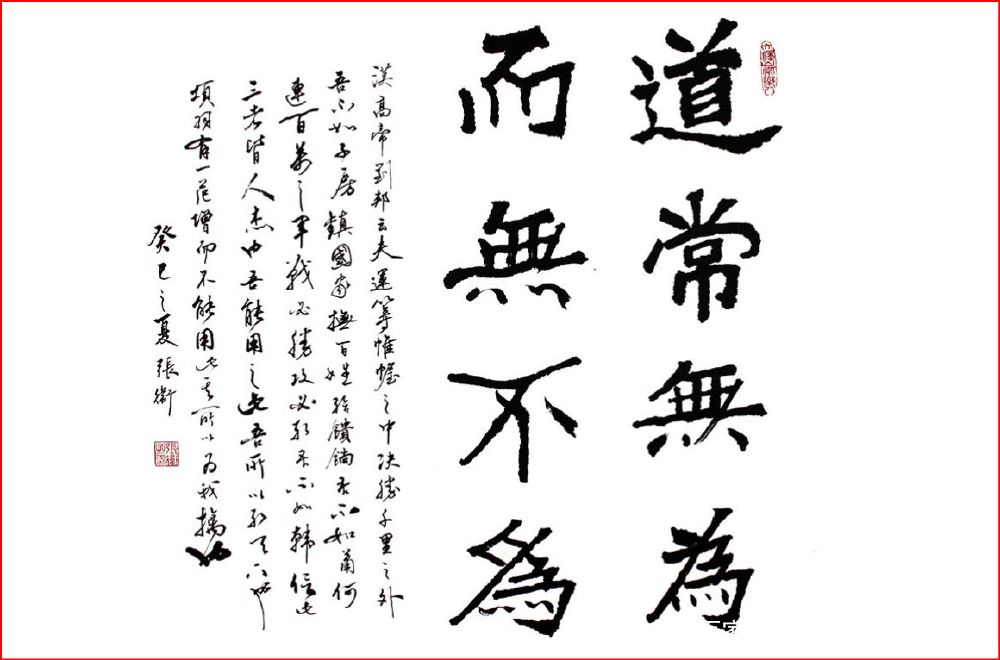 道常無為
而無不為
漢高帝劉邦云夫運筹帷幄之中决勝千里之外
吾不如子房鎮國家撫百姓给饋餉吾不如蕭何
連百萬之軍戰必勝攻必取吾不如韓信此
三者皆人杰也吾能用之此吾所以取天下也
項羽有一范增而不能用此其所以为我擒也
癸巳之夏張衛